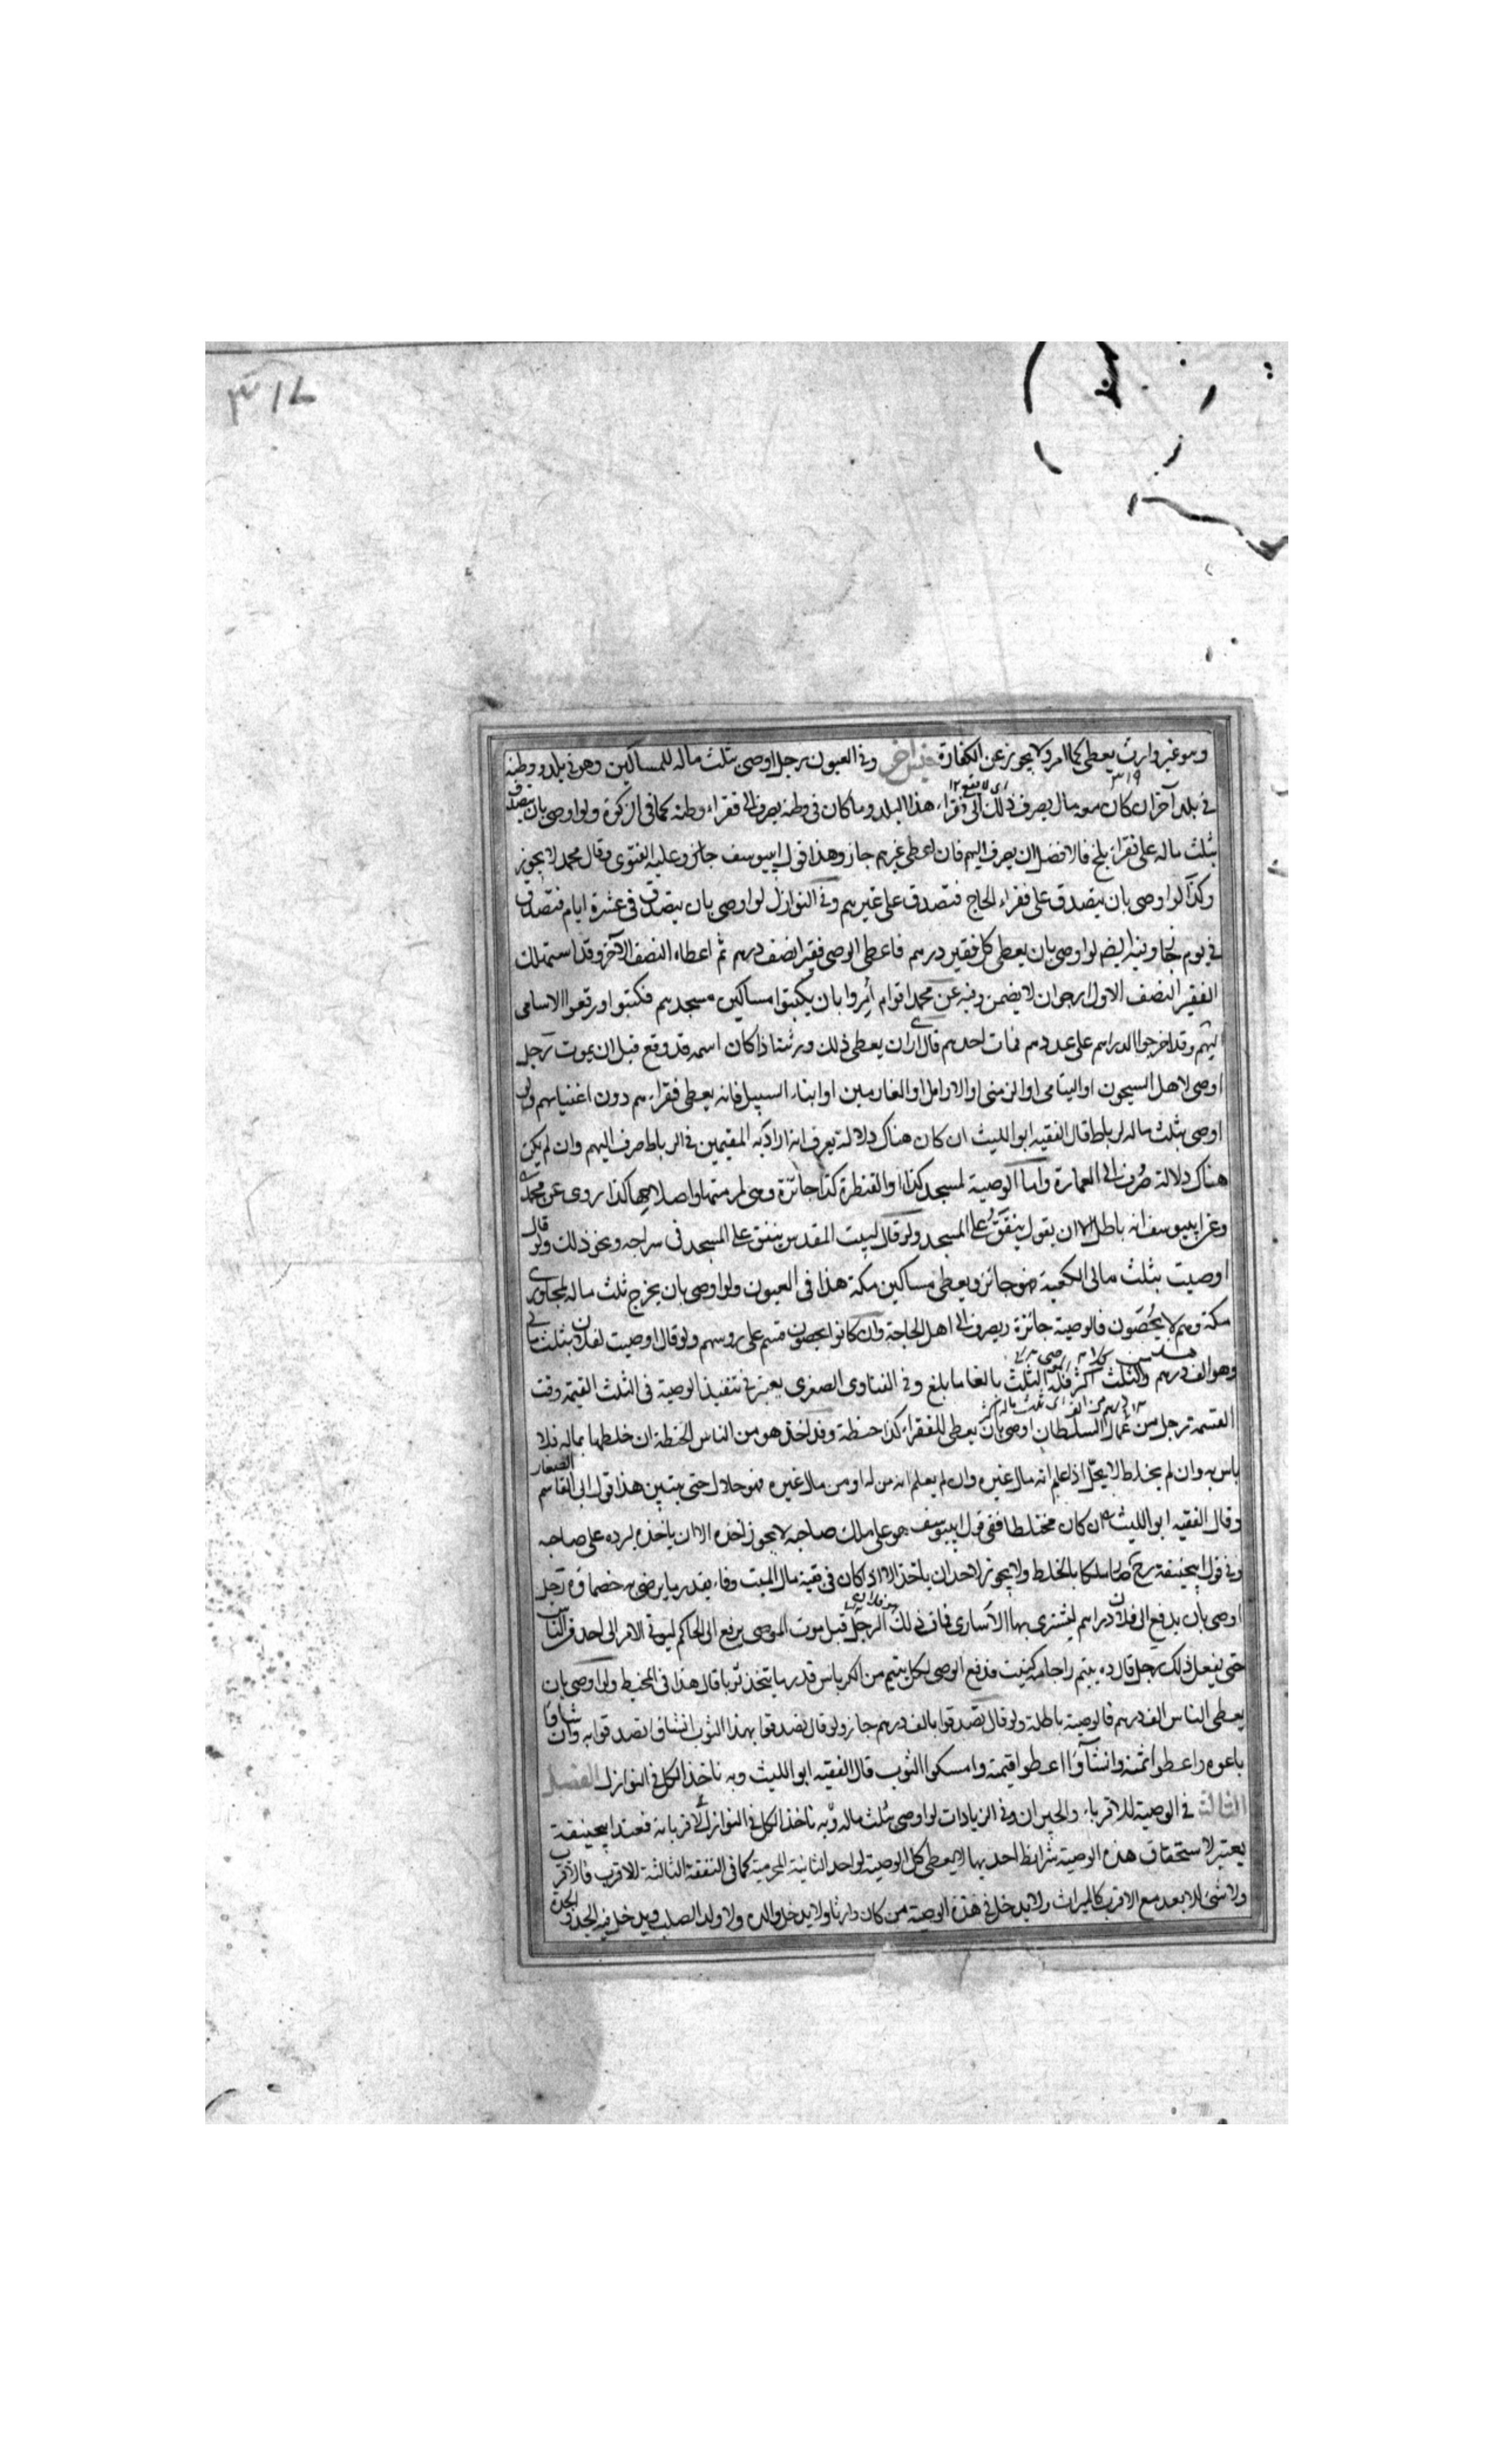 ٣١٧
وهو غير وارث يعطى كما امر ولا يجوز عن الكفارة جنس اخر وفى العيون رجل اوصى بثلث ماله للمساكين وهو فى بلد ووطنه
٣١٩
فى بلد آخر ان كان معه مال يصرف ذلك الى فقراء هذا البلد وما كان فى وطنه يصرف الى فقراء وطنه كما فى الزكوة ولو اوصى بان يتصدق
بثلث ماله على فقراء بلخ فالافضل ان يصرف اليهم فان اعطى غيرهم جاز وهذا قول ابيوسف جائز وعليه الفتوى وقال محمد لا يجوز
وكذا لو اوصى بان يتصدق على فقراء الحاج فتصدق على غيرهم وفى النوازل لو اوصى بان يتصدق فى عشرة ايام فتصدق
فى يوم جاز وفيه ايضا لو اوصى بان يعطى كل فقير درهم فاعطى الوصى فقيرا نصف درهم ثم اعطاه النصف الآخر وقد استهلك
الفقير النصف الاول ارجو ان لا يضمن وفيه عن محمد اقوام أمروا بان يكتبوا مساكين مسجدهم فكتبوا ورقعوا الاسامى
اليهم وقد اخرجوا الدراهم على عددهم فمات احدهم قال ارى ان يعطى ذلك ورثته اذا كان اسمه قد وقع قبل ان يموت رجل
اوصى لاهل السجون او اليتامى او الزمنى او الارامل او الغارمين او ابناء السبيل فانه يعطى فقراءهم دون اغنياءهم ولو
اوصى بثلث ماله لرباط قال الفقيه ابو الليث ان كان هناك دلالة يعرف انه اراد به المقيمين فى الرباط صرف اليهم وان لم يكن
هناك دلالة صرف الى العمارة واما الوصية لمسجد كذا او القنطرة كذا جائزة وهى لمرمتها واصلاحها كذا روى عن محمد
وعن ابيوسف انه باطل الا ان يقول ينفق على المسجد ولو قال لبيت المقدس ينفق على المسجد فى سراجه ونحو ذلك ولو قال
اوصيت بثلث مالى الكعبة فهو جائز ويعطى مساكين مكة هذا فى العيون ولو اوصى بان يخرج ثلث ماله لمجاورى
مكة وهم لا يحصون فالوصية جائزة ويصرف الى اهل الحاجة وان كانوا يحصون قسم على روسهم ولو قال اوصيت لفلان بثلث مالى
وهو الف درهم والثلث اكثر فله الثلث بالغا ما بلغ وفى الفتاوى الصغرى يعتبر فى تنفيذ الوصية فى الثلث القيمة وقت
القسمة رجل من عمال السلطان اوصى بان يعطى للفقراء كذا حنطة وقد اخذ هو من الناس الحنطة ان خلطها بماله فلا
باس به وان لم يخلط لا يحل اذ اعلم انه مال غيره وان لم يعلم انه من له او من مال غيره فهو حلال حتى يتبين هذا قول ابى القاسم الصفار
وقال الفقيه ابو الليث ان كان مختلطا ففى قول ابيوسف هو على ملك صاحبه لا يجوز اخذه الا ان ياخذه ليرده على صاحبه
وفى قول ابيحنيفة رح صار ملكا بالخلط ولا يجوز لاحد ان ياخذ الا اذا كان فى بقية مال الميت وفاء بقدر ما يرضى به خصماؤه رجل
اوصى بان يدفع الى فلان دراهم ليشترى بها الاسارى فمات ذلك الرجل قبل موت الموصى يرفع الى الحاكم ليولى الامر الى احد من الناس
حتى يفعل ذلك رجل قال ده يتيم را جامه كنيت فدفع الوصى لكل يتيم من الكرباس قدر ما يتخذ ثوبا قال هذا فى المحيط ولو اوصى بان
يعطى الناس الف درهم فالوصية باطلة ولو قال تصدقوا بالف درهم جاز ولو قال تصدقوا بهذا الثوب ان شاؤا تصدقوا به وان شاؤا
باعوه واعطوا ثمنه وان شاؤا اعطوا قيمته وامسكوا الثوب قال الفقيه ابو الليث وبه ناخذ الكل فى النوازل الفصل
الثالث فى الوصية للاقرباء والجيران وفى الزيادات لو اوصى بثلث ماله وبه ناخذ الكل فى النوازل لاقربائه فعند ابيحنيفة
يعتبر لاستحقاق هذه الوصية شرايط احديها لا يعطى كل الوصية لواحد الثانية المحرمية كما فى النفقة الثالثة للاقرب فالاقرب
ولا شئ للابعد مع الاقرب كالميراث ولا يدخل فى هذه الوصية من كان وارثا ولا يدخل والده ولا ولد الصلب ويدخل فيه الجد والجدة